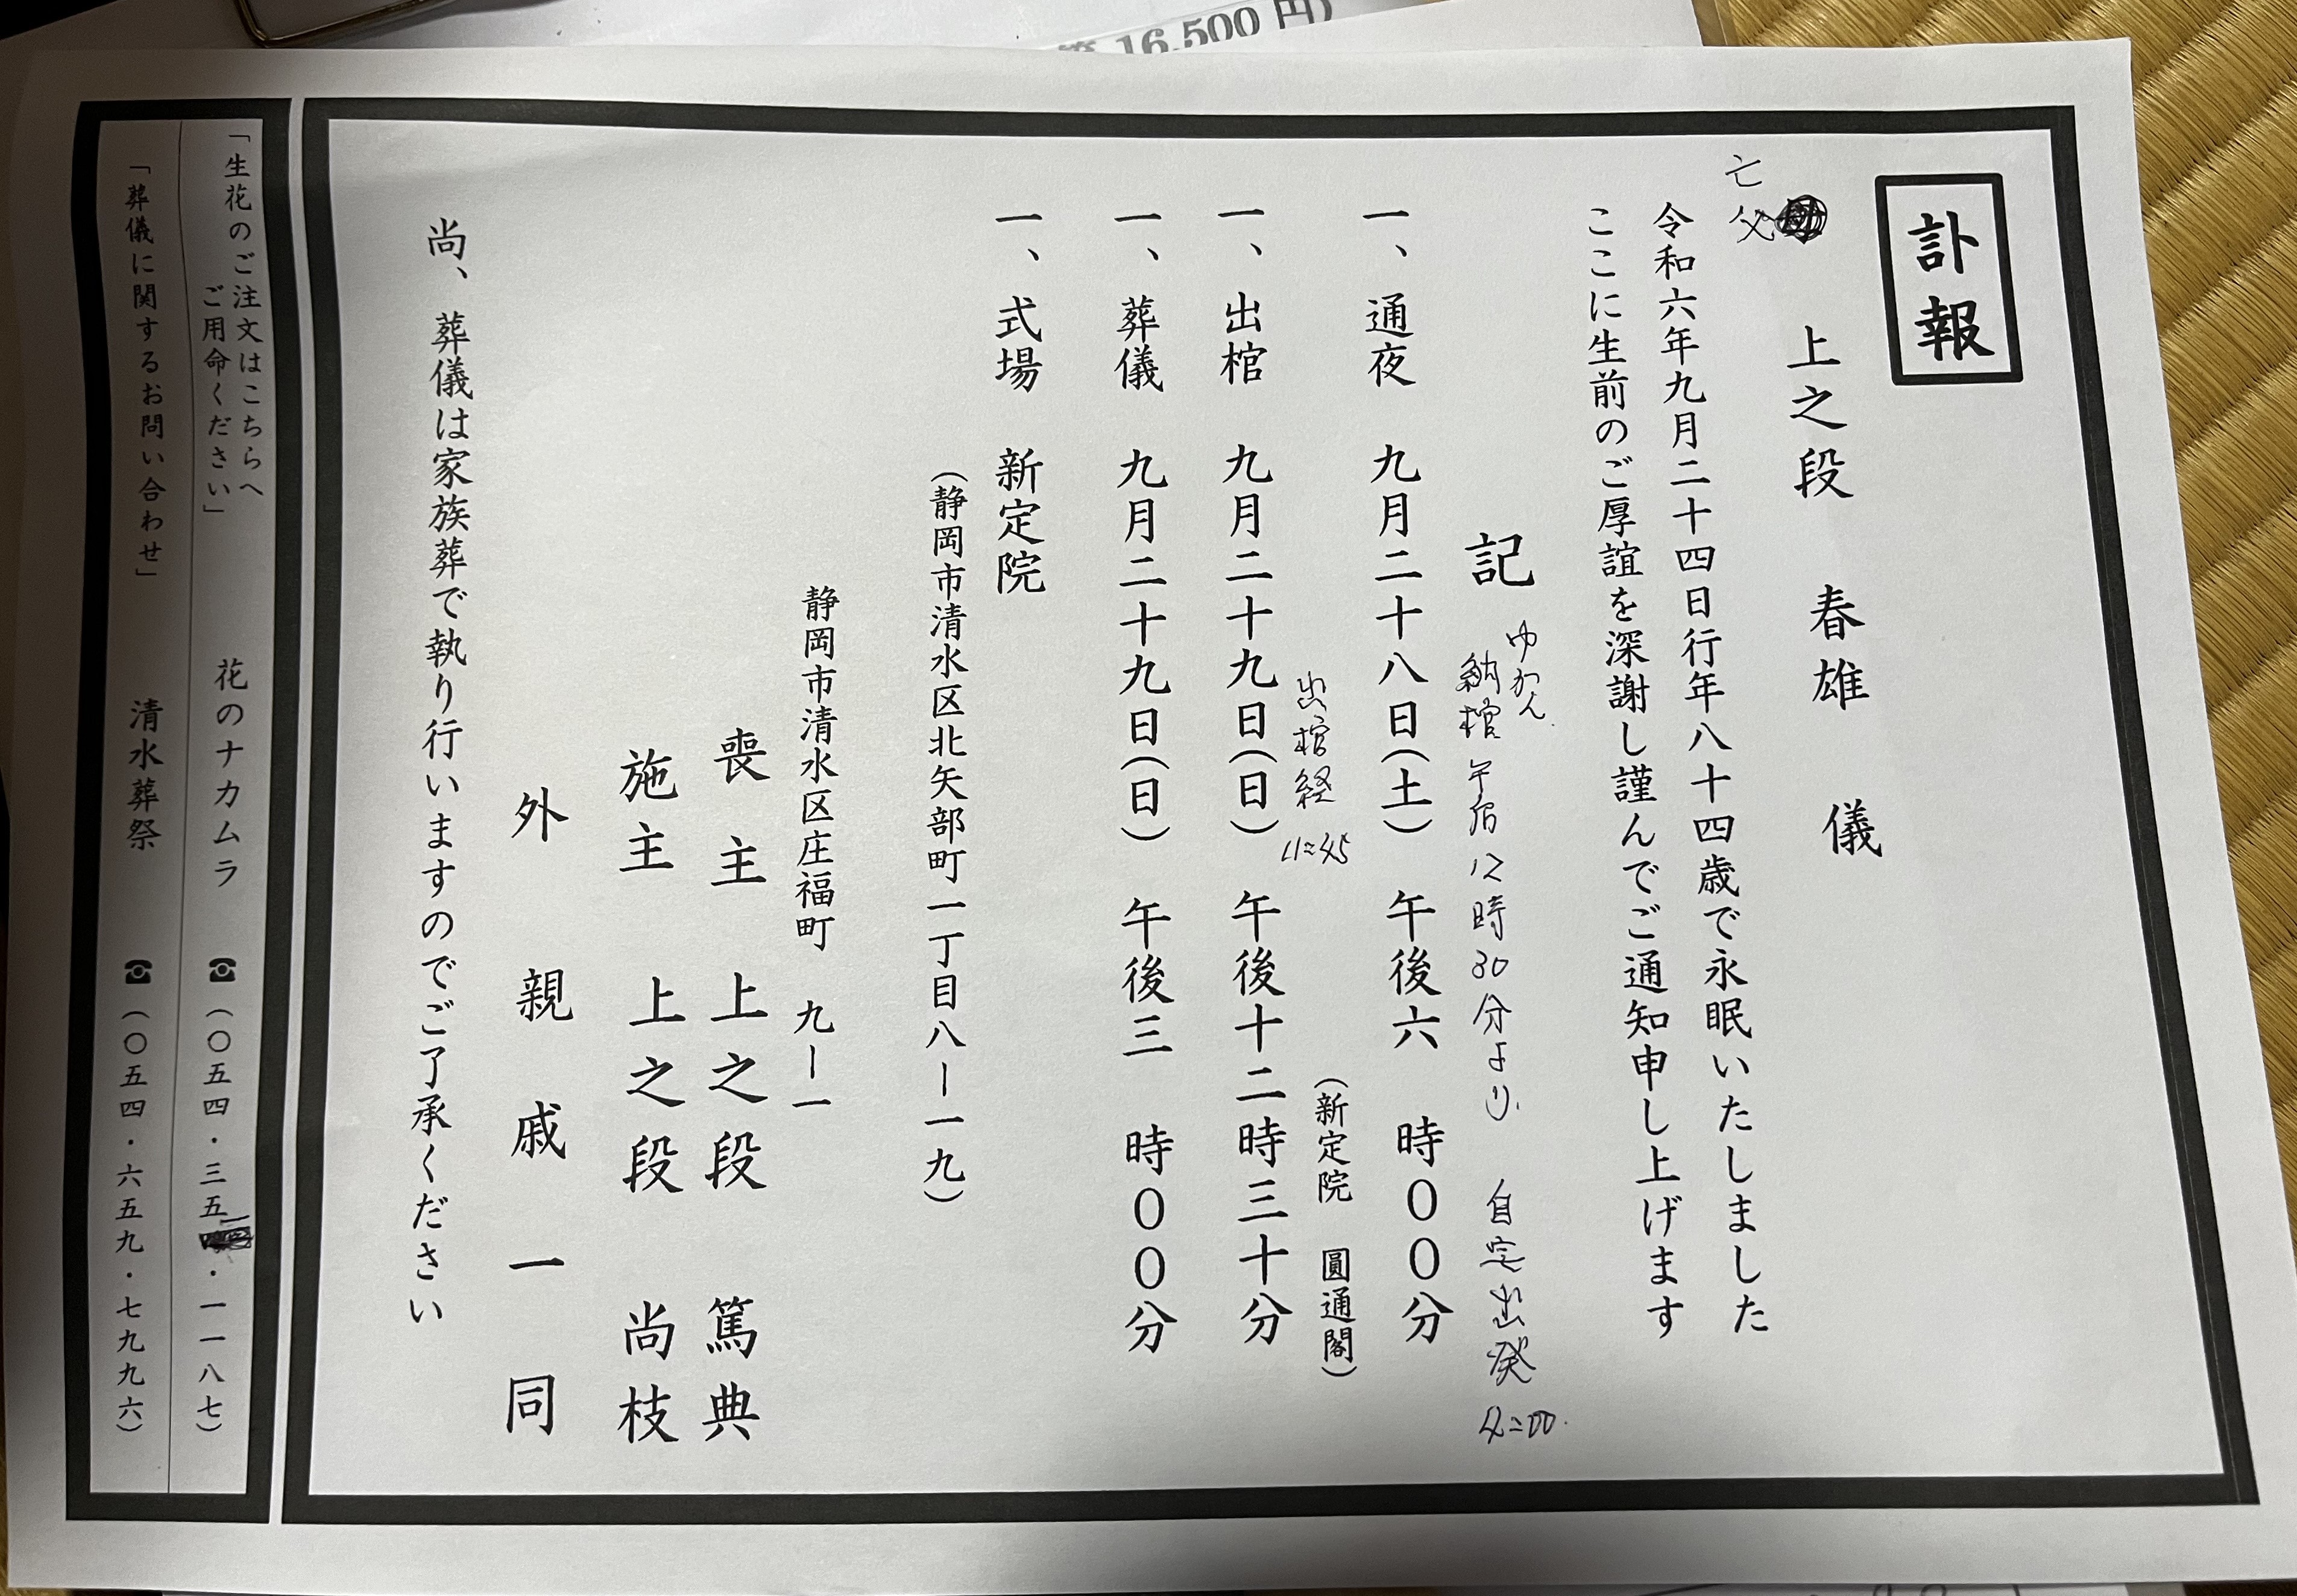 16,500円)
訃報
上之段 春雄 儀
亡父
令和六年九月二十四日行年八十四歳で永眠いたしました
ここに生前のご厚誼を深謝し謹んでご通知申し上げます
記
ゆかん
納棺 午后12時30分より 自宅出発 4:00
一、通夜 九月二十八日(土) 午後六 時00分
(新定院 圓通閣)
出棺経 11:45
一、出棺 九月二十九日(日) 午後十二時三十分
一、葬儀 九月二十九日(日) 午後三 時00分
一、式場 新定院
(静岡市清水区北矢部町一丁目八ー一九)
静岡市清水区庄福町 九ー一
喪主 上之段 篤典
施主 上之段 尚枝
外 親戚一同
尚、葬儀は家族葬で執り行いますのでご了承ください
「生花のご注文はこちらへ
ご用命ください」 花のナカムラ ☎(〇五四・三五一・一一八七)
「葬儀に関するお問い合わせ」 清水葬祭 ☎(〇五四・六五九・七九九六)